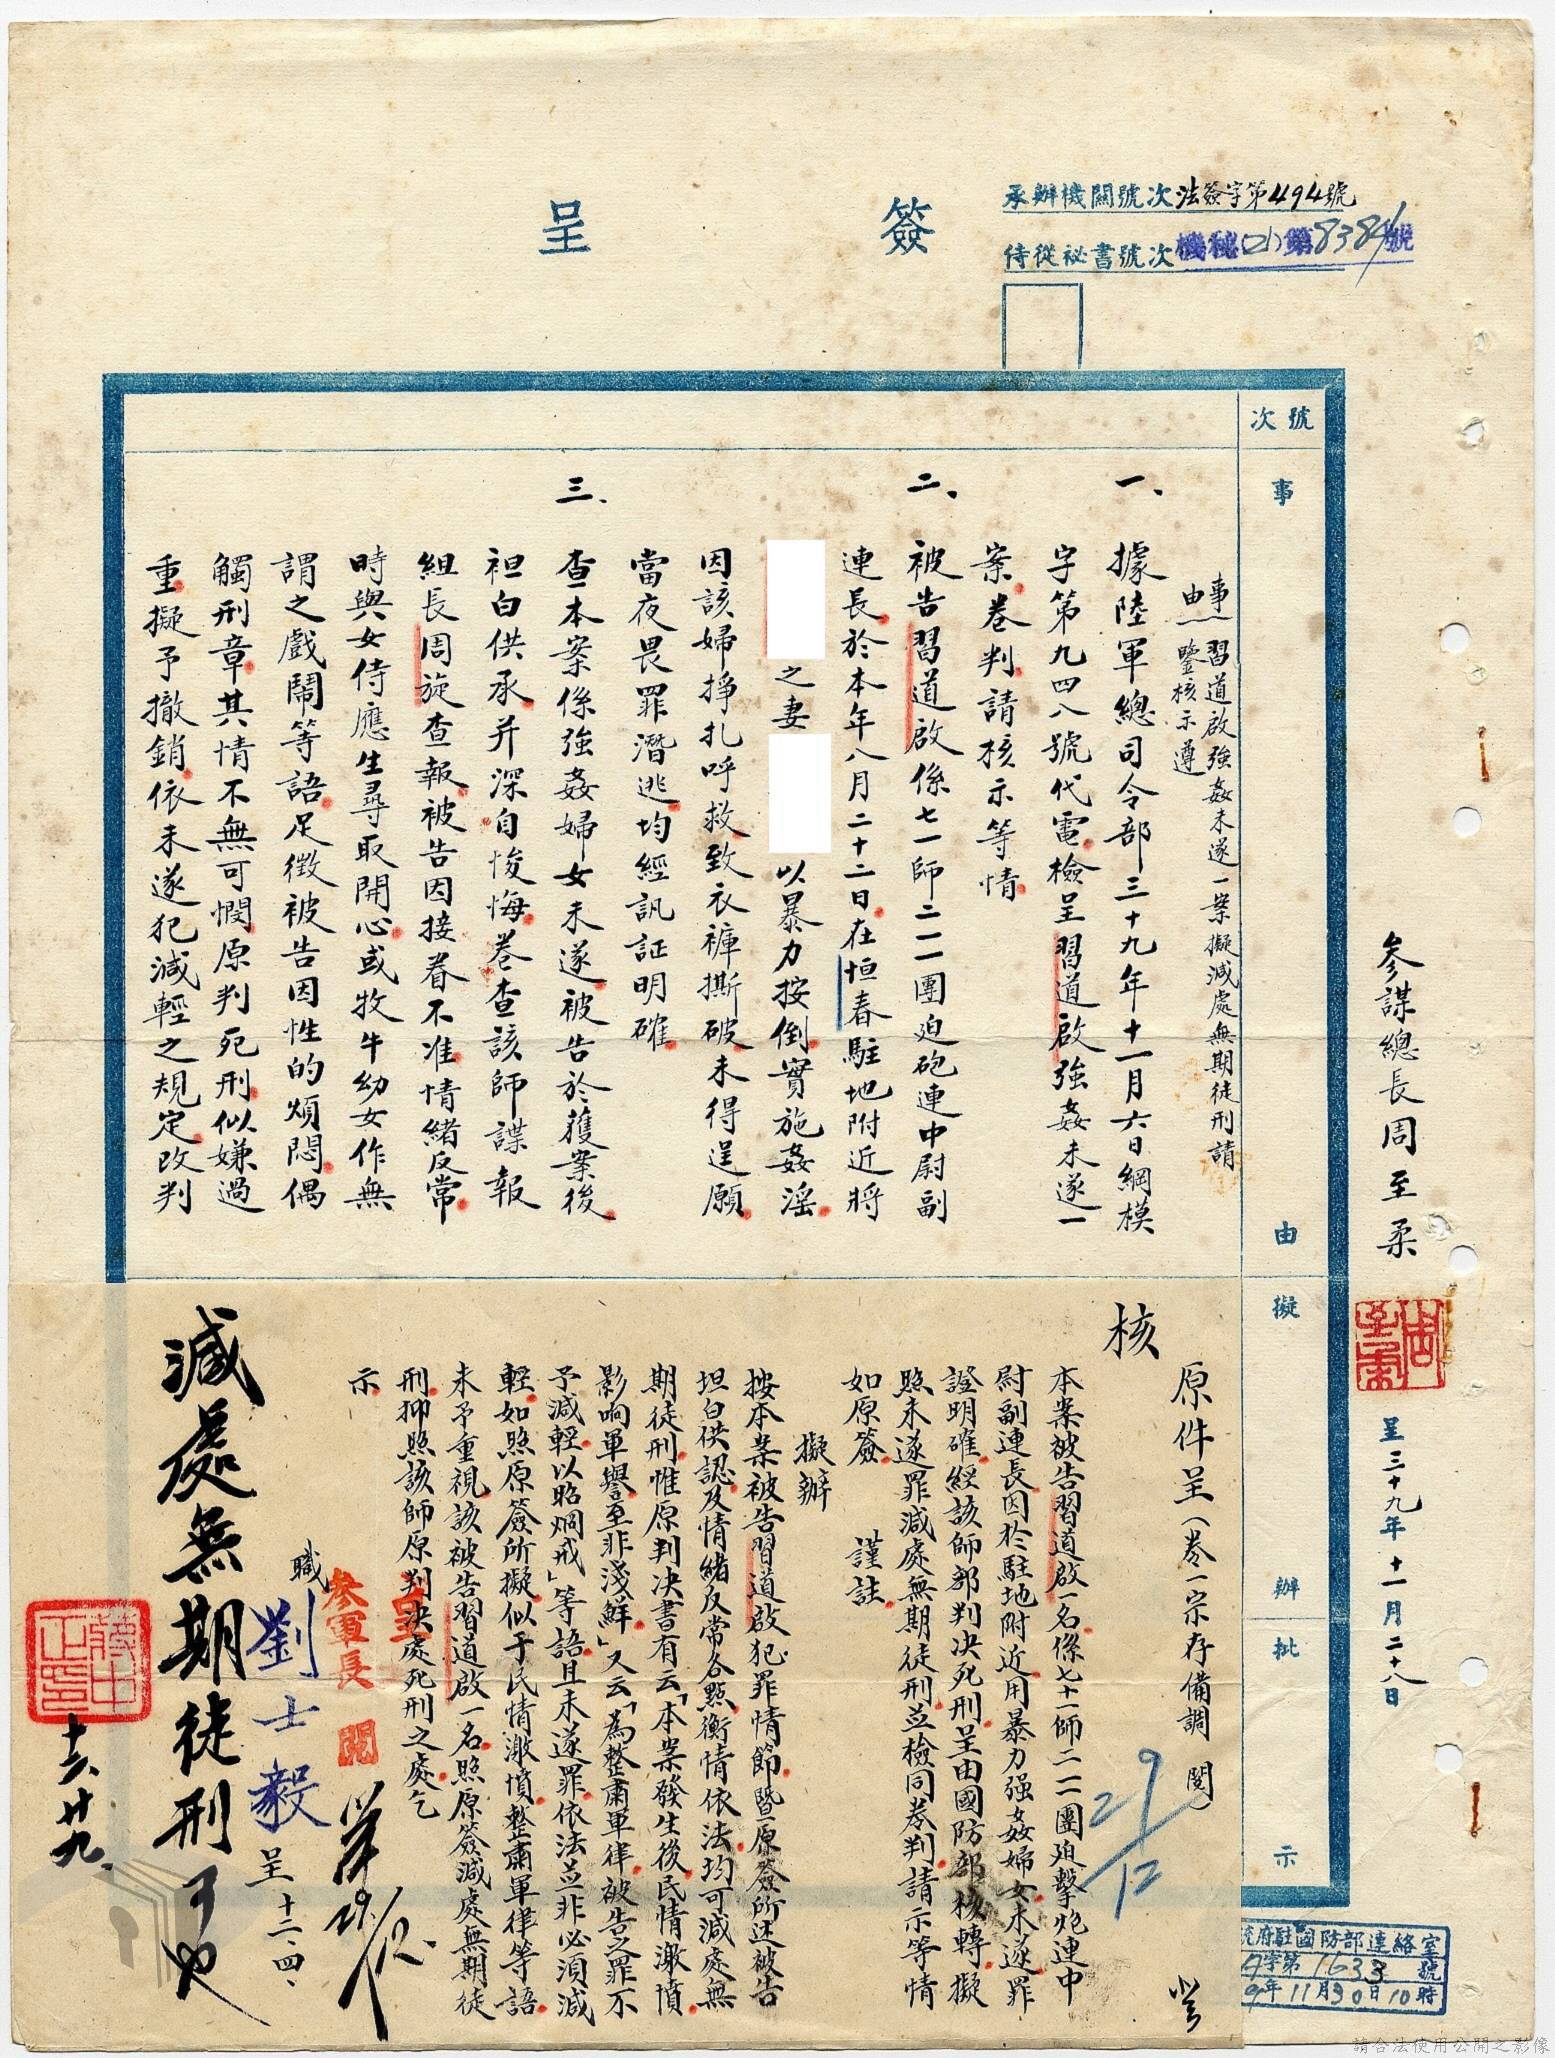 簽
呈
承辦機關號次法簽字第494號
侍從祕書號次機秘(乙)第8384號
參謀總長周至柔
周至柔
呈三十九年十一月二十八日
號次
事
由
擬
辦
批
示
事由
習道啟強姦未遂一案擬減處無期徒刑請
鑒核示遵
一、據陸軍總司令部三十九年十一月六日綱模
字第九四八號代電檢呈習道啟強姦未遂一
案卷判請核示等情
二、被告習道啟係七一師二一一團迫砲連中尉副
連長於本年八月二十二日在恒春駐地附近將
之妻 以暴力按倒實施姦淫
因該婦掙扎呼救致衣褲撕破未得逞願
當夜畏罪潛逃均經訊証明確
三、查本案係強姦婦女未遂被告於獲案後
袒白供承并深自悛悔卷查該師諜報
組長周旋查報被告因接眷不准情緒反常
時與女侍應生尋取開心或牧牛幼女作無
謂之戲鬧等語足徵被告因性的煩悶偶
觸刑章其情不無可憫原判死刑似嫌過
重擬予撤銷依未遂犯減輕之規定改判
原件呈(卷一宗存備調閱)
核
本案被告習道啟一名係七十一師二一一團迫擊炮連中
尉副連長因於駐地附近用暴力强姦婦女未遂罪
證明確經該師部判決死刑呈由國防部核轉擬
照未遂罪減處無期徒刑並檢同卷判請示等情
如原簽 謹註
擬辦
按本案被告習道啟犯罪情節暨原簽所述被告
坦白供認及情緒反常各點衡情依法均可減處無
期徒刑惟原判決書有云「本案發生後民情激憤
影响軍譽至非淺鮮」又云「為整肅軍律被告之罪不
予減輕以昭烱戒」等語且未遂罪依法並非必須減
輕如照原簽所擬似于民情激憤整肅軍律等語
未予重視該被告習道啟一名照原簽減處無期徒
刑抑照該師原判決處死刑之處乞
示
職劉士毅呈十二、四、
參軍長
閱
29/12
29/12
減處無期徒刑可也
蔣中正印
十六、廿九、
統府駐國防部連絡室
字第1633號
9年11月30日10時
請合法使用公開之影像